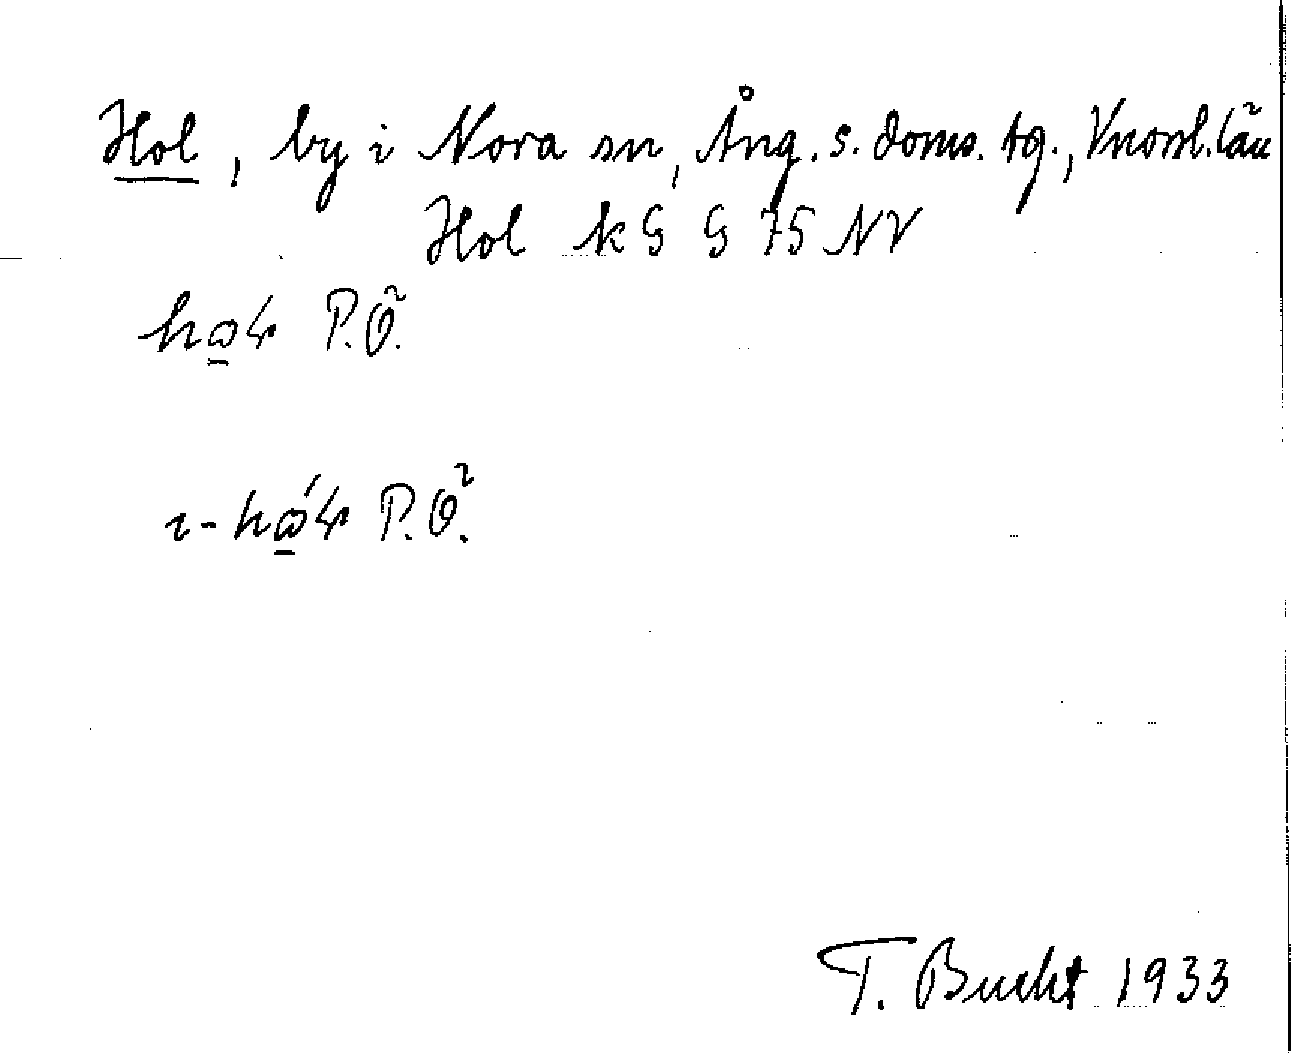 Hol, by i Nora sn, Ång. s. doms. tg., Vnorrl. län
Hol kG G 75 NV
P.Ö.
P.Ö.
T. Bucht 1933